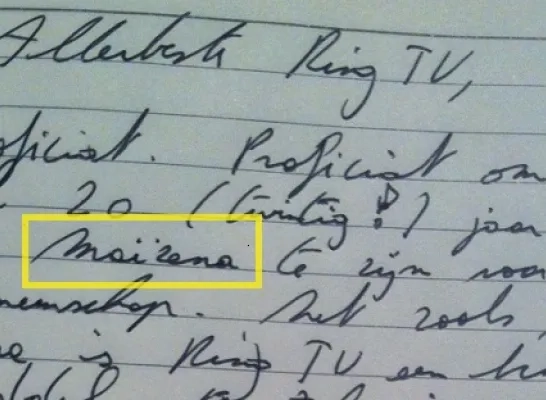 Allerbeste Ring TV,
oficiat. Proficiat om
20 (twintig!) jaar
maïzena te zijn voor
meenschap. Net zoals
is Ring TV een